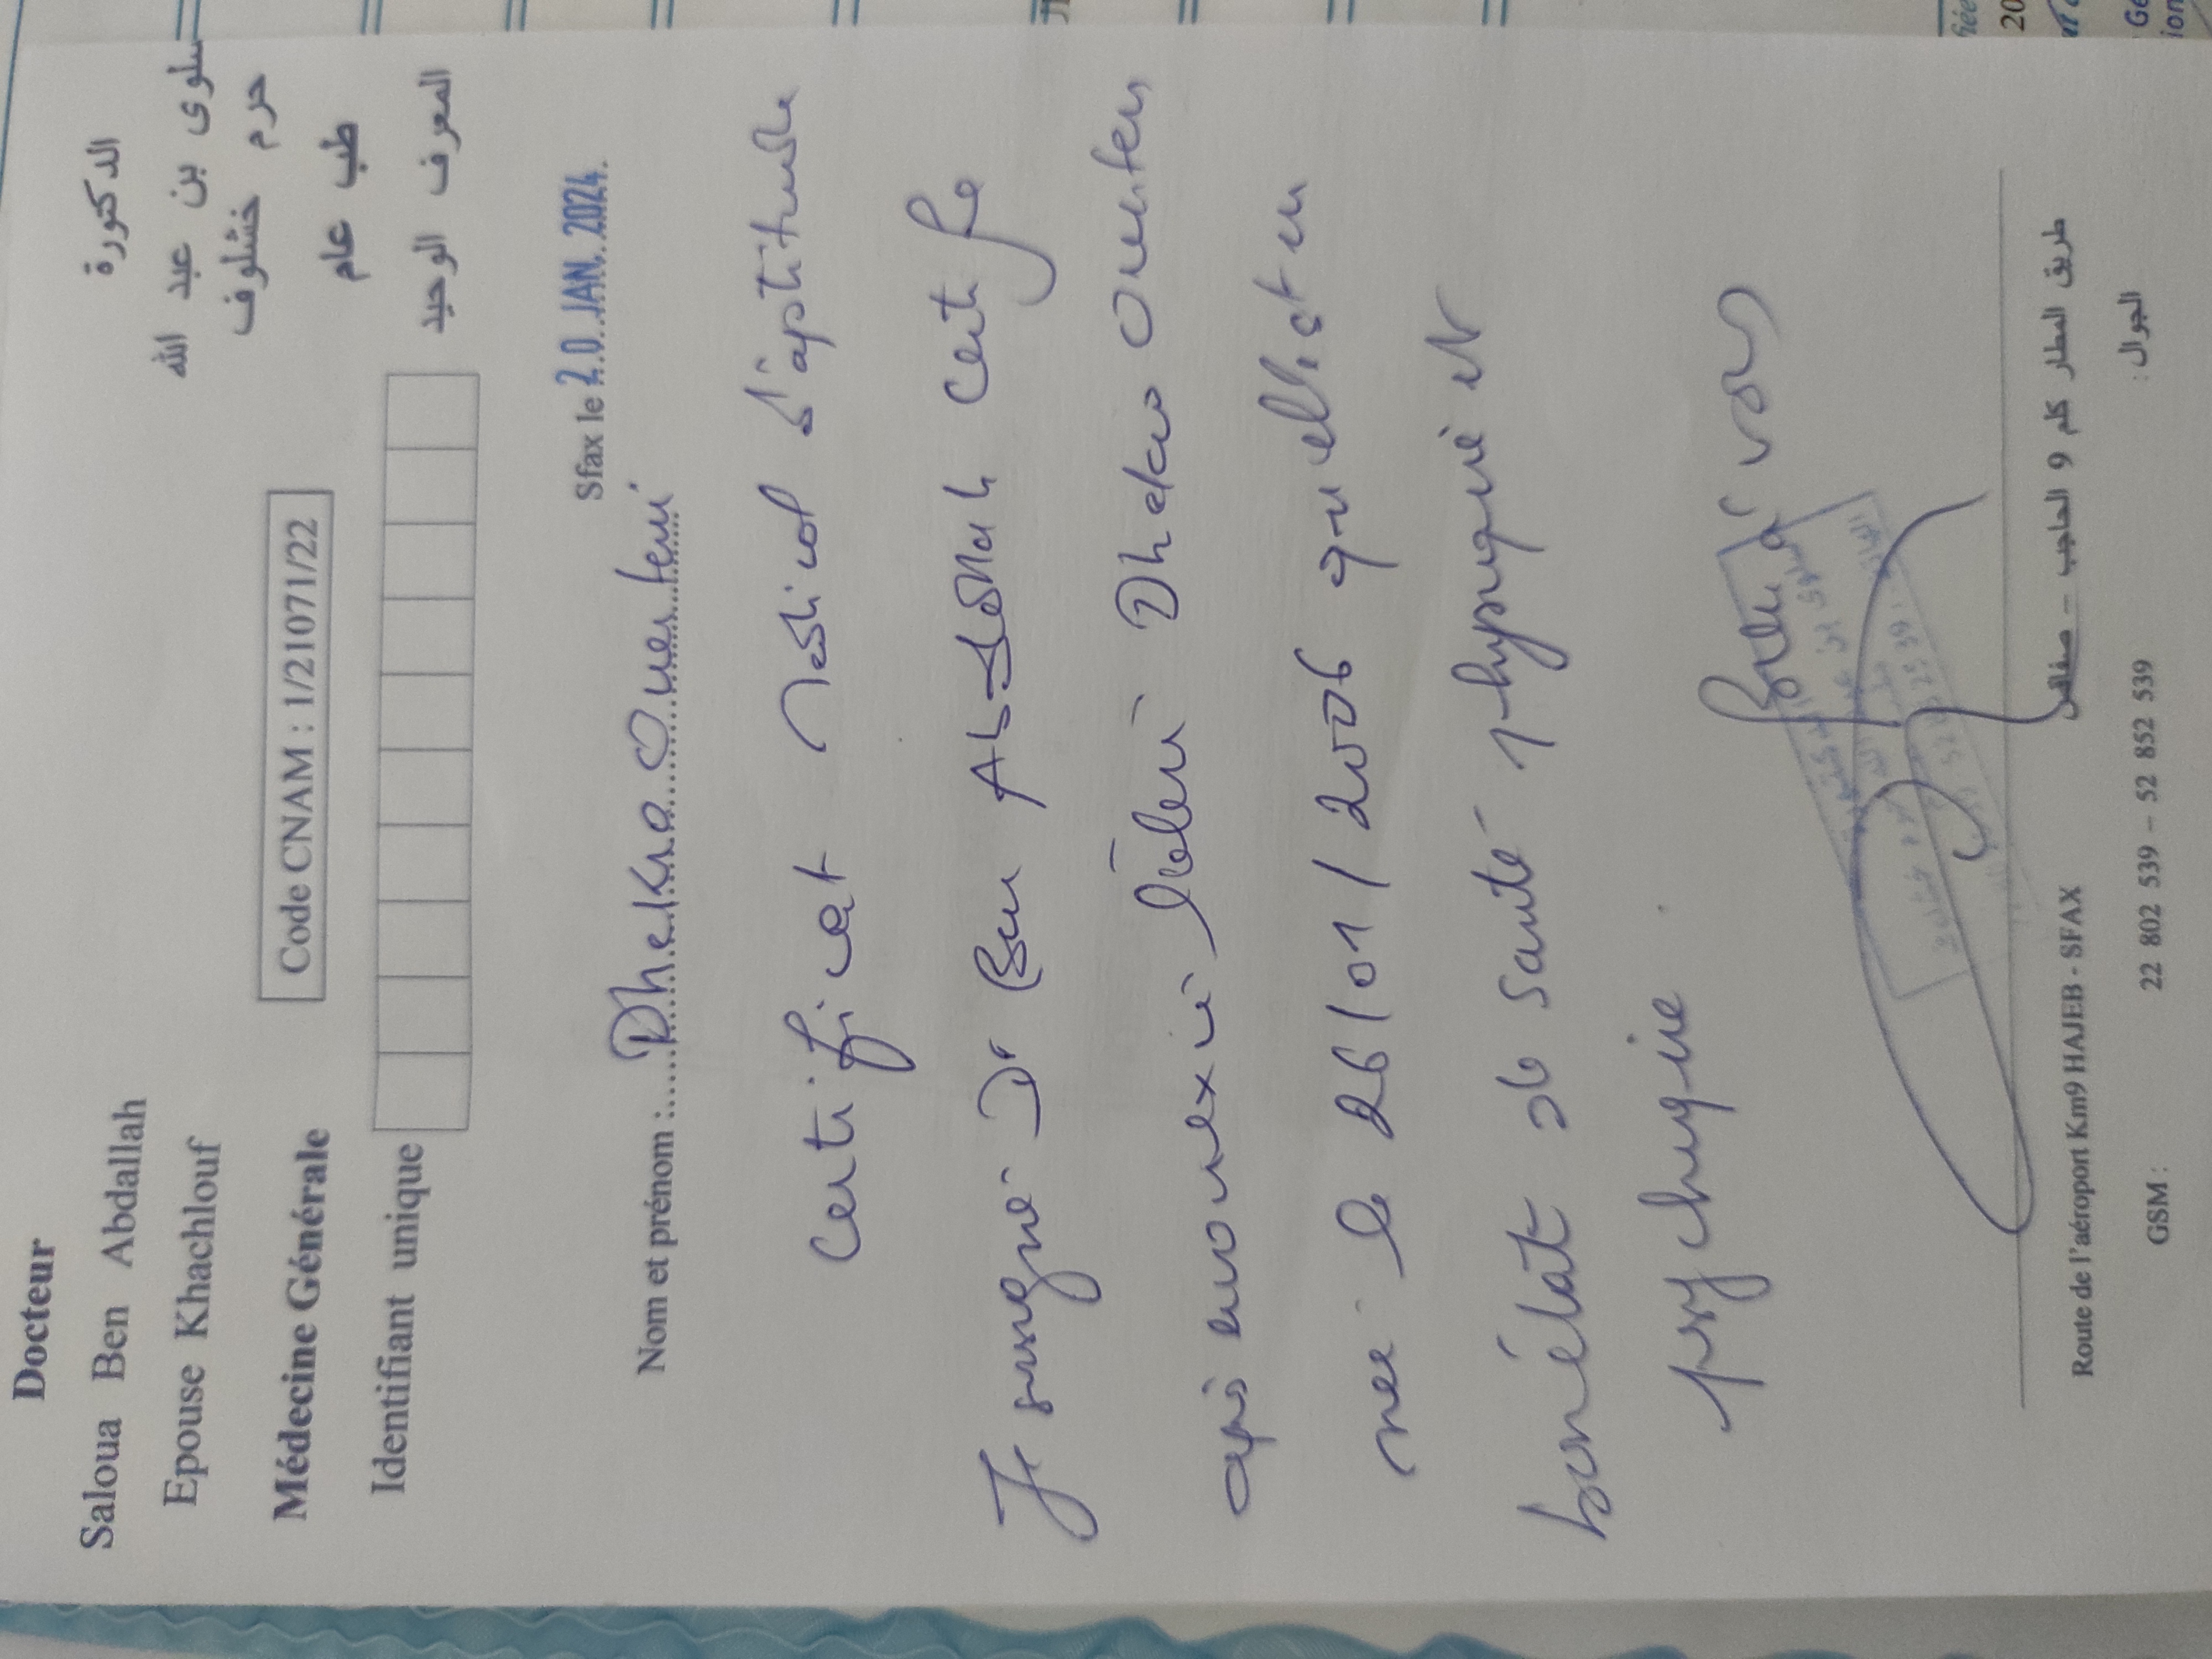 Docteur
Saloua Ben Abdallah
Epouse Khachlouf
Médecine Générale
Identifiant unique
Code CNAM : 1/21071/22
الدكتورة
سلوى بن عبد الله
حرم خشلوف
طب عام
المعرف الوحيد
Sfax le 20 JAN. 2024
Nom et prénom : Dhekra Ouerteni
Certificat Médical d'aptitude
Je sousigné Dr Ben Abdallah Certifie
après avoir examiné Dhekra
née le 26/01/2006 qu'elle est en
bon état de santé physique et
psychique
Route de l'aéroport Km9 HAJEB - SFAX
طريق المطار كلم 9 الحاجب – صفاقس
GSM : 22 802 539 – 52 852 539 الجوال :